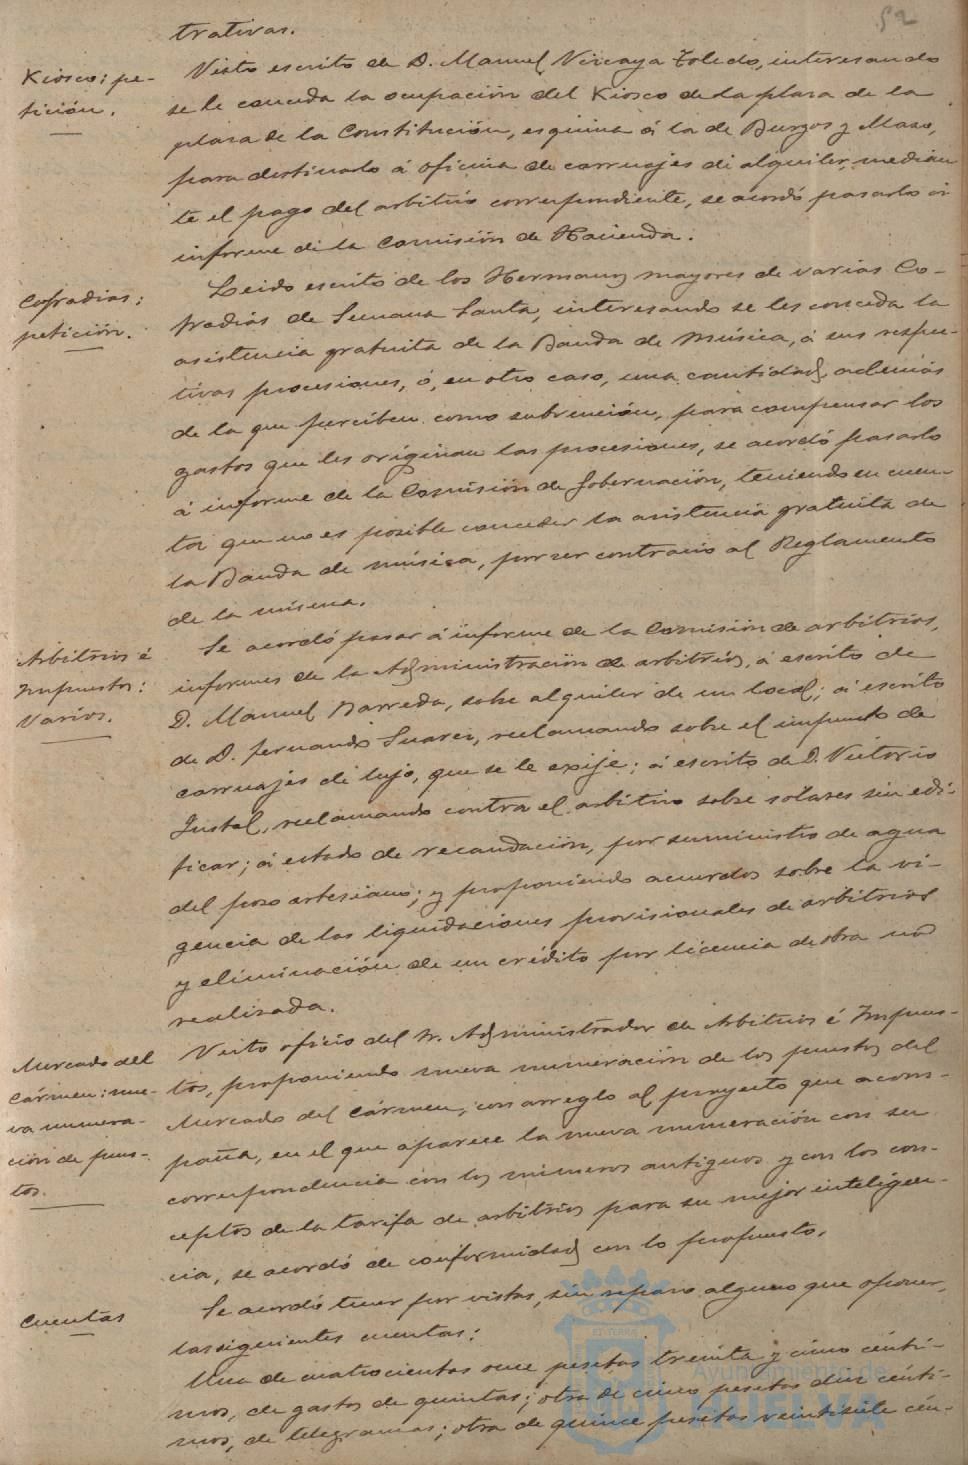 52
trativas.
Kiosco: pe-
tición.
Visto escrito de D. Manuel Vizcaya Toledo, interesando
se le conceda la ocupación del Kiosco de la plaza de la
plaza de la Constitución, esquina á la de Burgos y Mazo,
para destinarlo á oficina de carruajes de alquiler, median
te el pago del arbitrio correspondiente, se acordó pasarlo á
informe de la Comisión de Hacienda.
Cofradias:
petición.
Leido escrito de los Hermanos mayores de varias Co-
fradías de Semana Santa, interesando se les conceda la
asistencia gratuita de la Banda de Música, á sus respec-
tivas procesiones, ó, en otro caso, una cantidad, además
de la que perciben como subvención, para compensar los
gastos que les originan las procesiones, se acordó pasarlo
á informe de la Comisión de Gobernación, teniendo en cuen-
ta que no es posible conceder la asistencia gratuita de
la Banda de música, por ser contrario al Reglamento
de la misma.
Arbitrios é
Impuestos:
Varios.
Se acordó pasar á informe de la Comisión de arbitrios,
informes de la Administración de arbitrios, á escrito de
D. Manuel Barreda, sobre alquiler de un local; á escrito
de D. Fernando Suarez, reclamando sobre el impuesto de
carruajes de lujo, que se le exije; á escrito de D. Victorio
Justel, reclamando contra el arbitrio sobre solares sin edi-
ficar; á estado de recaudación, por suministro de agua
del pozo artesiano; y proponiendo acuerdos sobre la vi-
gencia de las liquidaciones provisionales de arbitrios
y eliminación de un crédito por licencia de obra no
realizada.
Mercado del
Cármen: nue-
va numera-
ción de pues-
tos.
Visto oficio del Sr. Administrador de Arbitrios é Impues-
tos, proponiendo nueva numeración de los puestos del
Mercado del Cármen, con arreglo al proyecto que acom-
paña, en el que aparece la nueva numeración con su
correspondencia con los números antiguos y con los con-
ceptos de la tarifa de arbitrios para su mejor inteligen-
cia, se acordó de conformidad con lo propuesto.
Cuentas
Se acordó tener por vistas, sin reparo alguno que oponer,
las siguientes cuentas:
Una de cuatrocientas once pesetas treinta y cinco cénti-
mos, de gastos de quintas; otra de cinco pesetas diez cénti-
mos, de telegramas; otra de quince pesetas veintisiete cén-
Ayuntamiento de
HUELVA